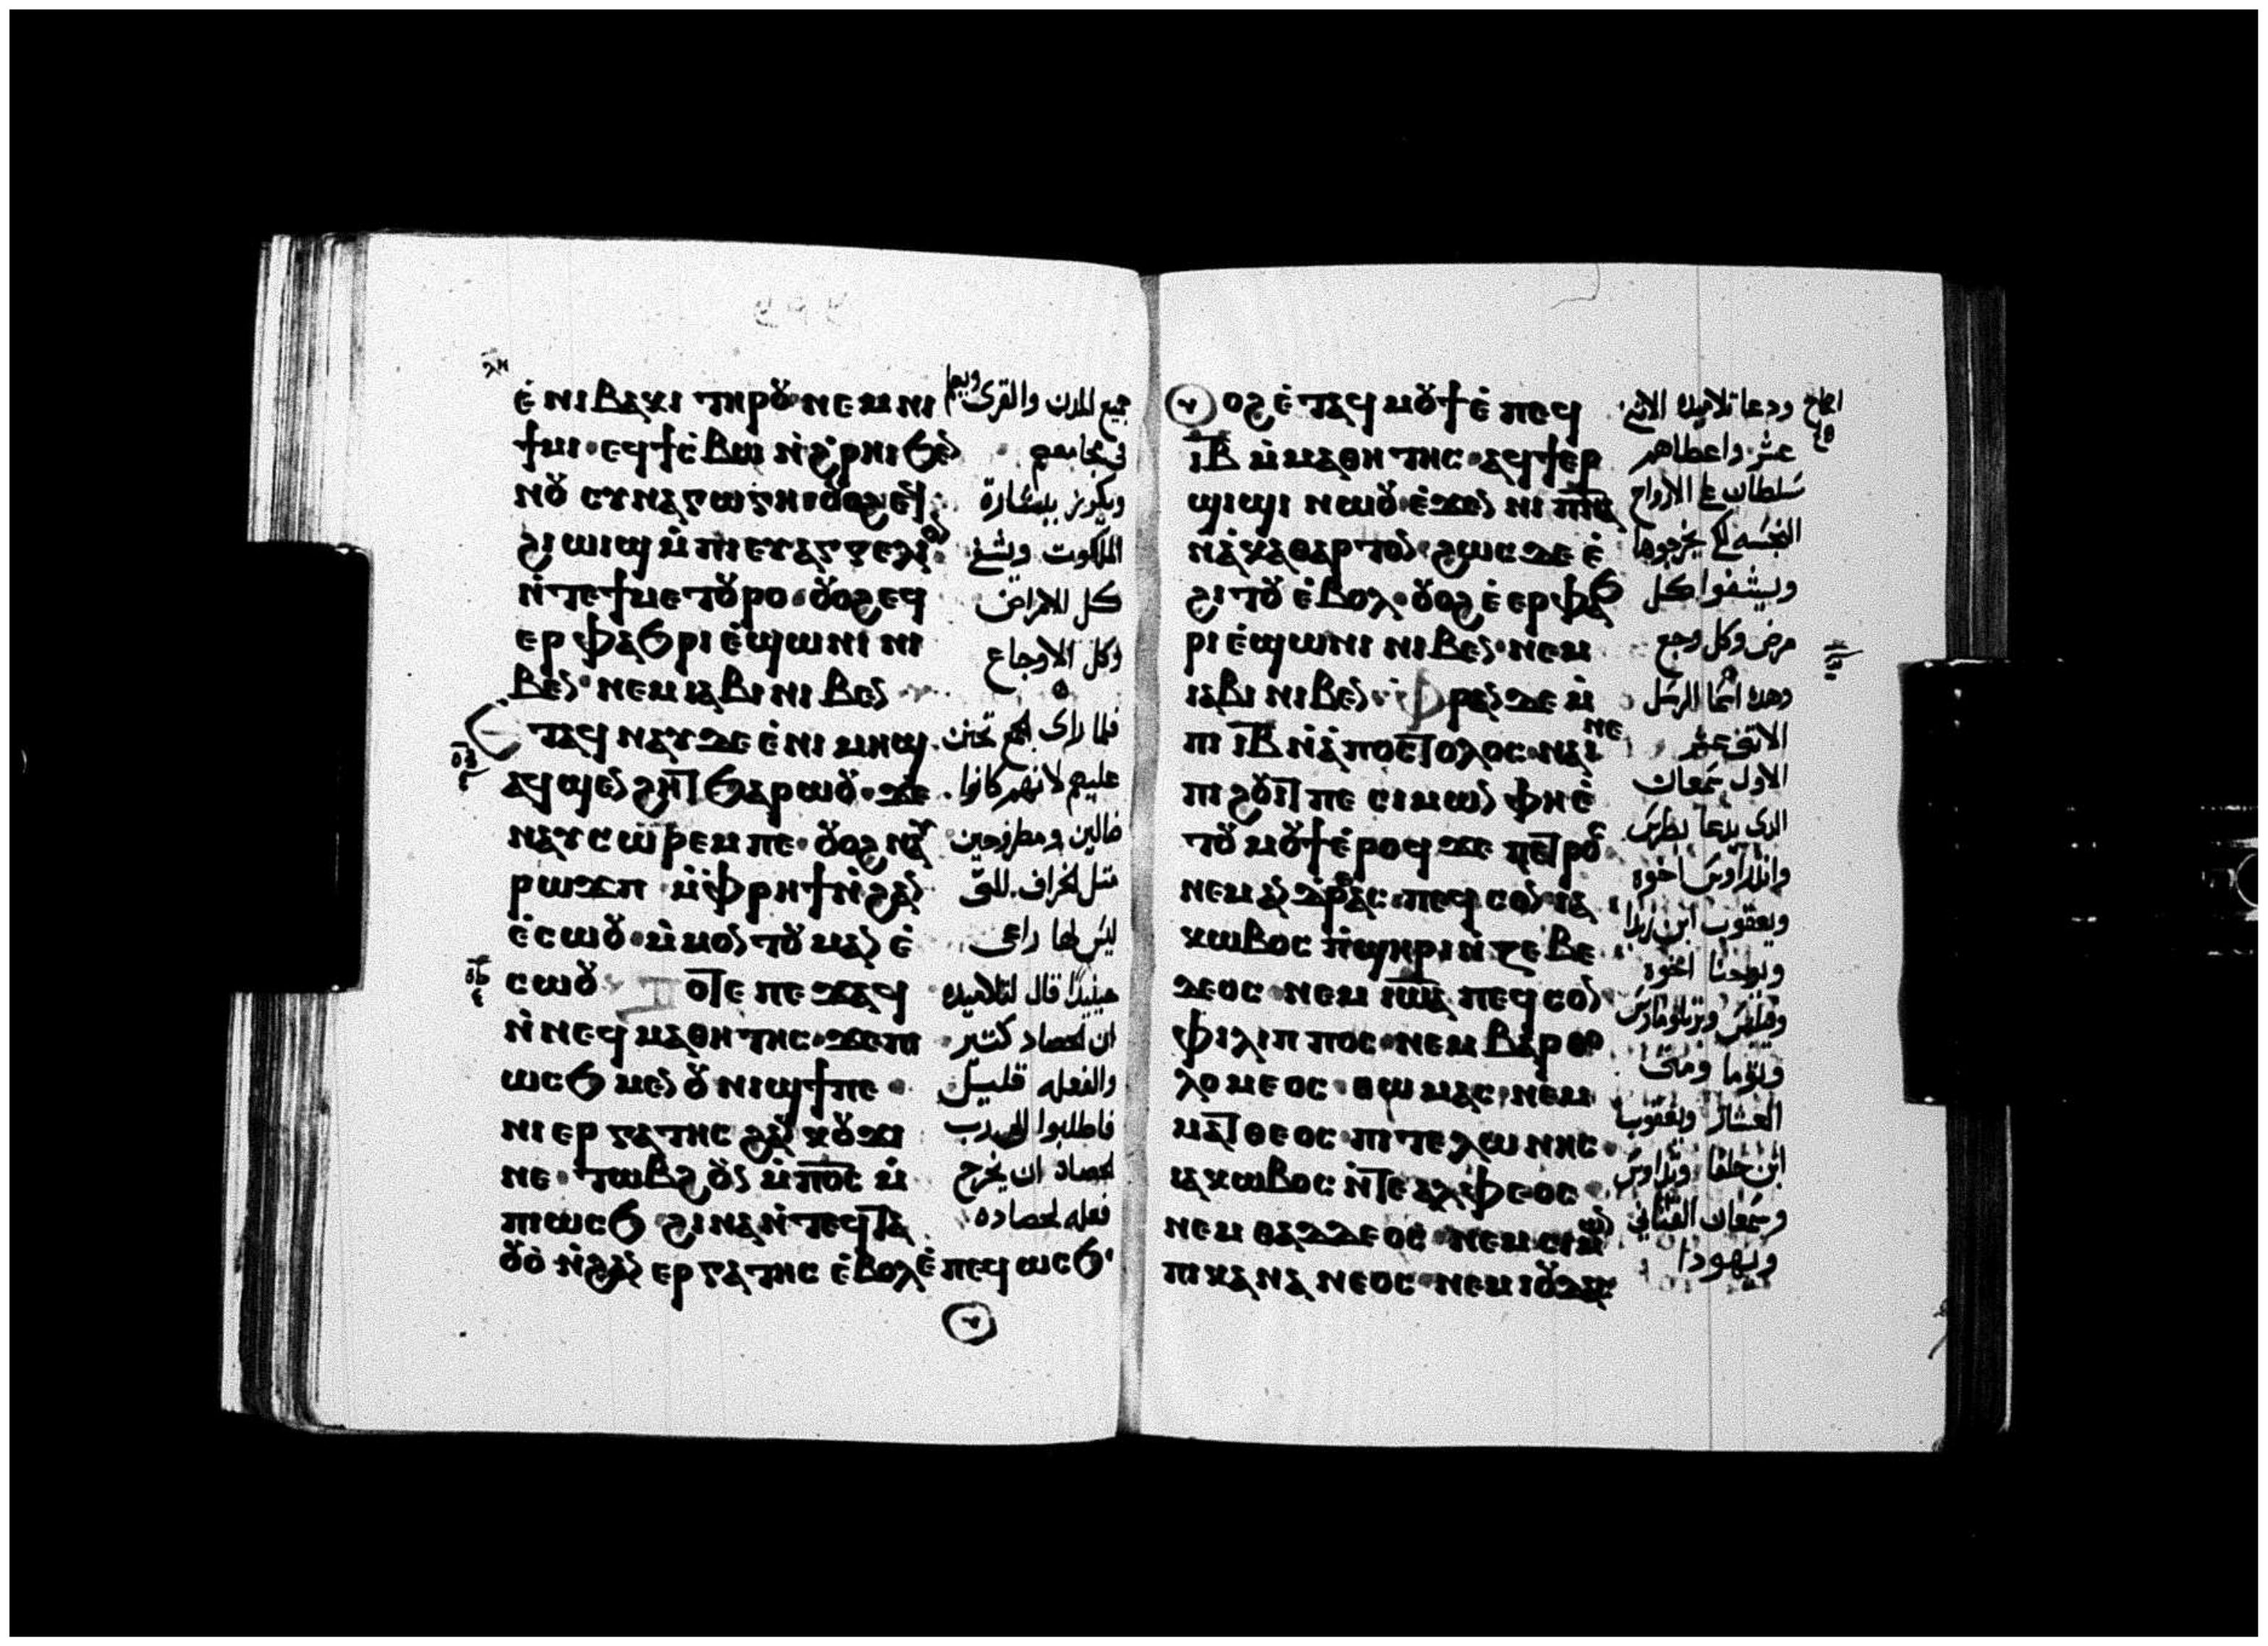 ⲉ̀ⲛⲓⲃⲁⲕⲓ ⲧⲏⲣⲟⲩ ⲛⲉⲙ ⲛⲓ
ϯⲙⲓ ⲉϥϯⲥ̀ⲃⲱ ⲛ̀ϩ̀ⲣⲏⲓ ϧⲉⲛ
ⲛⲟⲩⲥⲩⲛⲁⲅⲱⲅⲏ ⲟⲩⲟϩ ⲉϥ
ϩⲓⲱⲓϣ ⲙ̀ⲡⲓⲉⲩⲁⲅⲅⲉⲗⲓⲟⲛ
ⲛ̀ⲧⲉϯⲙⲉⲧⲟⲩⲣⲟ ⲟⲩⲟϩ ⲉϥ
ⲉⲣⲫⲁϧⲣⲓ ⲉ̀ϣⲱⲛⲓ ⲛⲓ
ⲃⲉⲛ ⲛⲉⲙ ⲓⲁⲃⲓ ⲛⲓⲃⲉⲛ
Ⲉⲧⲁϥⲛⲁⲩ ⲇⲉ ⲉ̀ⲛⲓⲙⲏϣ
ⲁϥϣⲉⲛϩⲏⲧ ϧⲁⲣⲱⲟⲩ ϫⲉ
ⲛⲁⲩⲥⲱⲣⲉⲙ ⲡⲉ ⲟⲩⲟϩ ⲛⲁⲩ
ⲣⲱϫⲡ ⲙ̀ⲫ̀ⲣⲏϯ ⲛ̀ϩⲁⲛ
ⲉ̀ⲥⲱⲟⲩ ⲙ̀ⲙⲟⲛⲧⲟⲩ ⲙⲁⲛⲉ̀
ⲥⲱⲟⲩ Ⲧⲟⲧⲉ ⲡⲉϫⲁϥ
ⲛ̀ⲛⲉϥⲙⲁⲑⲏⲧⲏⲥ ϫⲉ ⲡⲓ
ⲱⲥϧ ⲙⲉⲛ ⲟⲩⲛⲓϣϯ ⲡⲉ
ⲛⲓⲉⲣⲅⲁⲧⲏⲥ ϩⲁⲛⲕⲟⲩϫⲓ
ⲛⲉ ⲧⲱⲃϩ ⲟⲩⲛ ⲙ̀ⲡ̅ⲟ̅ⲥ̅ ⲙ̀
ⲡⲓⲱⲥϧ ϩⲓⲛⲁ ⲛ̀ⲧⲉϥⲧⲁ
ⲟⲩⲟ̀ ⲛ̀ϩⲁⲛⲉⲣⲅⲁⲧⲏⲥ ⲉ̀ⲃⲟⲗ ⲉ̀ⲡⲉϥⲱⲥϧ
جميع المدن والقرى ويعلم
في مجامعهم
ويكرز ببشارة
الملكوت ويشفي
كل الامراض
وكل الاوجاع
فلما راى الجمع تحنن
عليهم لانهم كانوا
ضالين ومطروحين
مثل الخراف التي
ليس لها راعى
حينيذ قال لتلاميذه
ان الحصاد كتير
والفعله قليل
فاطلبوا الى رب
الحصاد ان يخرج
فعله لحصاده
ⲟⲩⲟϩ ⲉ̀ⲧⲁϥⲙⲟⲩϯ ⲉ̀ⲡⲉϥ
ⲓ̅ⲃ̅ ⲙ̀ⲙⲁⲑⲏⲧⲏⲥ ⲁϥϯⲉⲣ
ϣⲓϣⲓ ⲛⲱⲟⲩ ⲉ̀ϫⲉⲛ ⲛⲓⲡ̅ⲛ̅ⲁ̅
ⲛ̀ⲁ̀ⲕⲁⲑⲁⲣⲧⲟⲛ ϩⲱⲥⲇⲉ ⲉ̀
ϩⲓⲧⲟⲩ ⲉ̀ⲃⲟⲗ ⲟⲩⲟϩ ⲉ̀ⲉⲣⲫⲁϧ
ⲣⲓ ⲉ̀ϣⲱⲛⲓ ⲛⲓⲃⲉⲛ ⲛⲉⲙ
ⲓⲁⲃⲓ ⲛⲓⲃⲉⲛ ⲫ̀ⲣⲁⲛ ⲇⲉ ⲙ̀
ⲡⲓ ⲓ̅ⲃ̅ ⲛ̀ⲁ̀ⲡⲟⲥⲧⲟⲗⲟⲥ ⲛⲁⲓ ⲛⲉ
ⲡⲓϩⲟⲩⲓⲧ ⲡⲉ ⲥⲓⲙⲱⲛ ⲫⲏⲉ̀
ⲧⲟⲩⲙⲟⲩϯ ⲉ̀ⲣⲟϥ ϫⲉ ⲡⲉⲧⲣⲟⲥ
ⲛⲉⲙ ⲁⲛⲇⲣⲉⲁⲥ ⲡⲉϥⲥⲟⲛ ⲓⲁ
ⲕⲱⲃⲟⲥ ⲡ̀ϣⲏⲣⲓ ⲛ̀ⲍⲉⲃⲉ
ⲇⲉⲟⲥ ⲛⲉⲙ ⲓ̅ⲱ̅ⲁ̅ ⲡⲉϥⲥⲟⲛ
ⲫⲓⲗⲓⲡⲡⲟⲥ ⲛⲉⲙ ⲃⲁⲣⲑⲟ
ⲗⲟⲙⲉⲟⲥ ⲑⲱⲙⲁⲥ ⲛⲉⲙ
ⲙⲁⲧⲑⲉⲟⲥ ⲡⲓⲧⲉⲗⲱⲛⲏⲥ
ⲓⲁⲕⲱⲃⲟⲥ ⲛ̀ⲧⲉ ⲁⲗⲫⲉⲟⲥ
ⲛⲉⲙ ⲑⲁⲇⲇⲉⲟⲥ ⲛⲉⲙ ⲥⲓⲙⲱⲛ
ⲡⲓⲕⲁⲛⲁⲛⲉⲟⲥ ⲛⲉⲙ ⲓⲟⲩⲇⲁⲥ
ودعا تلاميذه الاثنى
عشر واعطاهم
سلطان على الارواح
النجسه لكى يخرجوها
ويشفوا كل
مرض وكل وجع
وهذه اسما الرسل
الاثنى عشر
الاول سمعان
الذى يدعا بطرس
واندراوس اخوه
ويعقوب ابن زبدا
ويوحنا اخوه
وفيلبس وبرتلوماوس
وتوما ومتى
العشار ويعقوب
ابن حلفا وتداوس
وسمعان القناني
ويهودا